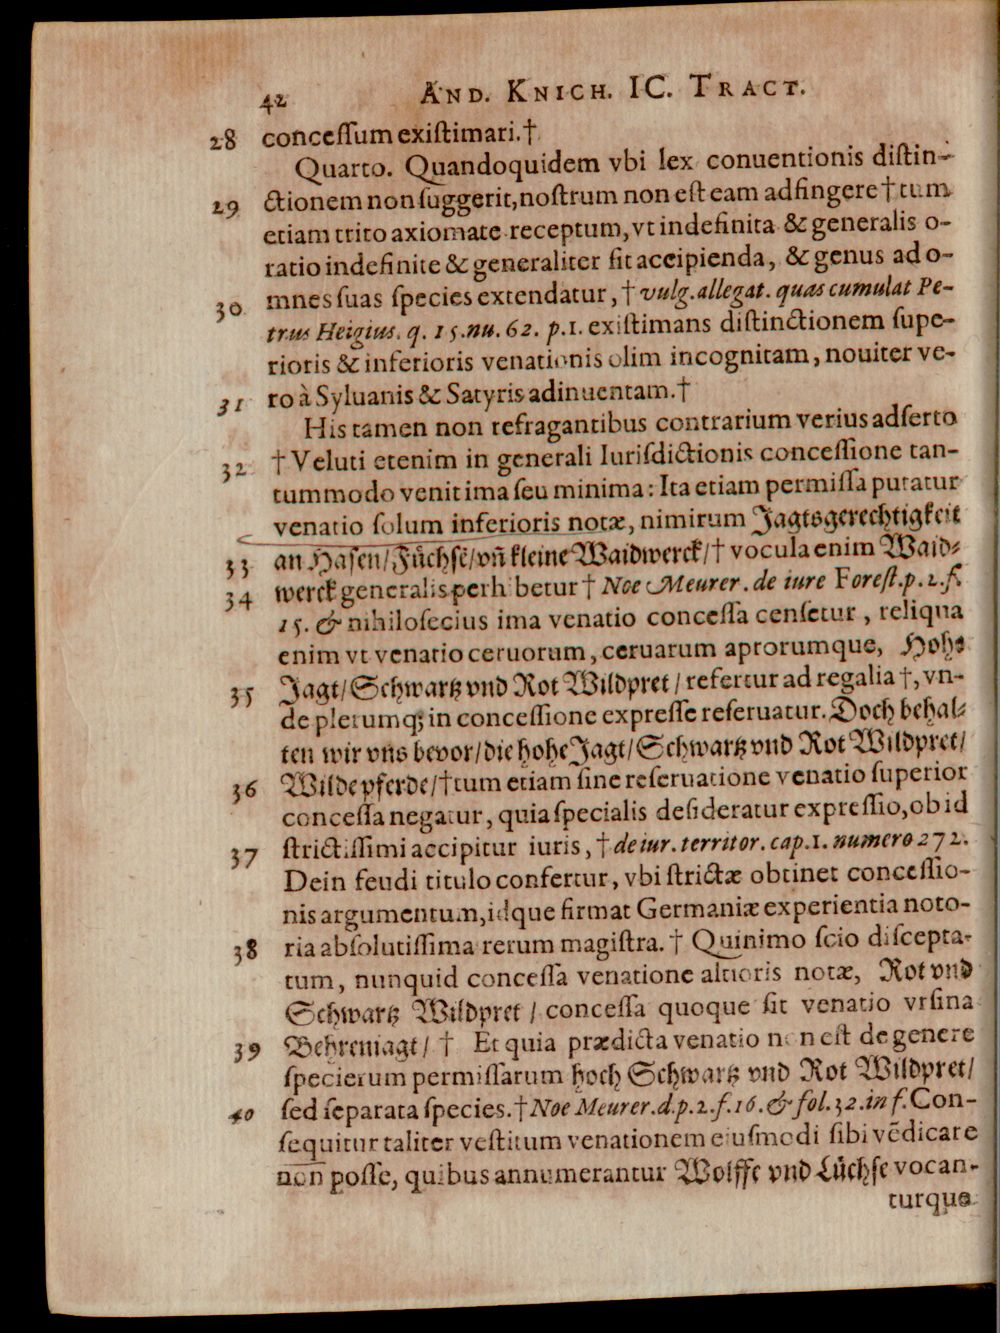 42 AND. KNICH. IC. TRACT.
28 concessum existimari.†
Quarto. Quandoquidem vbi lex conuentionis distin-
29 ctionem non suggerit, nostrum non est eam adfingere † tum
etiam trito axiomate receptum, vt indefinita & generalis o-
ratio indefinite & generaliter sit accipienda, & genus ad o-
30 mnes suas species extendatur, † vulg. allegat. quas cumulat Pe-
trus Heigius. q. 15. nu. 62. p. 1. existimans distinctionem supe-
rioris & inferioris venationis olim incognitam, nouiter ve-
31 ro à Syluanis & Satyris adinuentam.†
His tamen non refragantibus contrarium verius adserto
32 † Veluti etenim in generali Iurisdictionis concessione tan-
tummodo venit ima seu minima: Ita etiam permissa putatur
venatio solum inferioris notæ, nimirum Jagtsgerechtigkeit
33 an Hasen/ Füchsē/ vñ kleine Waidwerck/ † vocula enim Waid-
34 werck generalis perhibetur † Noe Meurer. de iure Forest. p. 2. f.
15. & nihilosecius ima venatio concessa censetur, reliqua
enim vt venatio ceruorum, ceruarum aprorumque, Hohe
35 Jagt/ Schwartz vnd Rot Wildpret / refertur ad regalia †, vn-
de plerumq; in concessione expresse reseruatur. Doch behal-
ten wir vns bevor/ die hohe Jagt/ Schwartz vnd Rot Wildpret/
36 Wilde pferde/ † tum etiam sine reseruatione venatio superior
concessa negatur, quia specialis desideratur expressio, ob id
37 strictissimi accipitur iuris, † de iur. territor. cap. 1. numero 272.
Dein feudi titulo confertur, vbi strictæ obtinet concessio-
nis argumentum, idque firmat Germaniæ experientia noto-
38 ria absolutissima rerum magistra. † Quinimo scio discepta-
tum, nunquid concessa venatione altioris notæ, Rot vnd
Schwartz Wildpret / concessa quoque sit venatio vrsina
39 Behreniagt/ † Et quia prædicta venatio non est de genere
specierum permissarum hoch Schwartz vnd Rot Wildpret/
40 sed separata species. † Noe Meurer. d. p. 2. f. 16. & fol. 32. in f. Con-
sequitur taliter vestitum venationem eiusmodi sibi vēdicare
non posse, quibus annumerantur Wolffe vnd Lüchse vocan-
turque